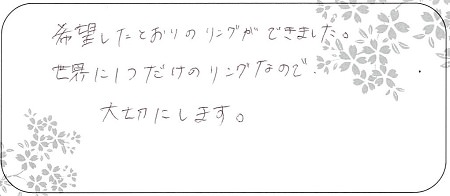 希望したとおりのリングができました。
世界に1つだけのリングなので
大切にします。